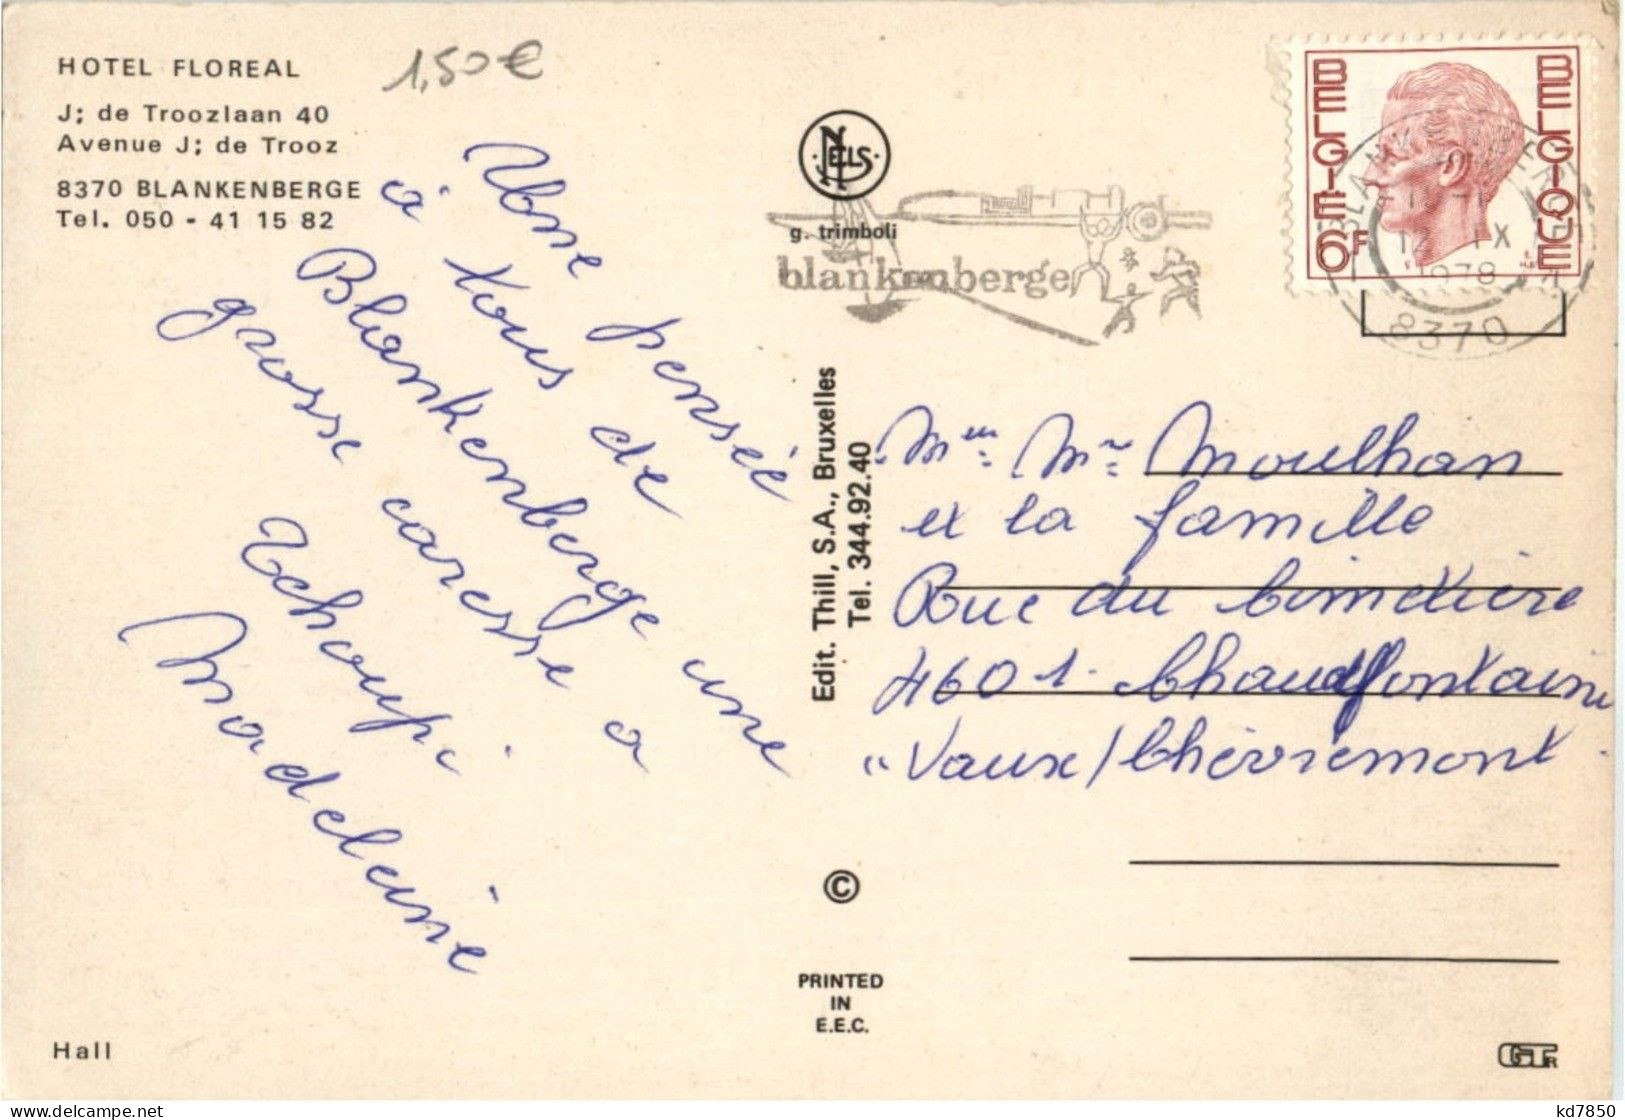 HOTEL FLOREAL
J; de Troozlaan 40
Avenue J; de Trooz
8370 BLANKENBERGE
Tel. 050 - 41 15 82
1,50€
Une pensée
à tous de
Blankenberge une
grosse caresse a
Tchoupi.
Madeleine
Hall
NELS
g. trimboli
blankenberge
Edit. Thill, S.A., Bruxelles
Tel. 344.92.40
©
PRINTED
IN
E.E.C.
BELGIE
BELGIQUE
6F
BLANKENBERGE
12 IX
1978
8370
Mme Mr Moulhan
et la famille
Rue du Cimetière
4601. Chaudfontaine
"Vaux/Chèvremont.
kd7850